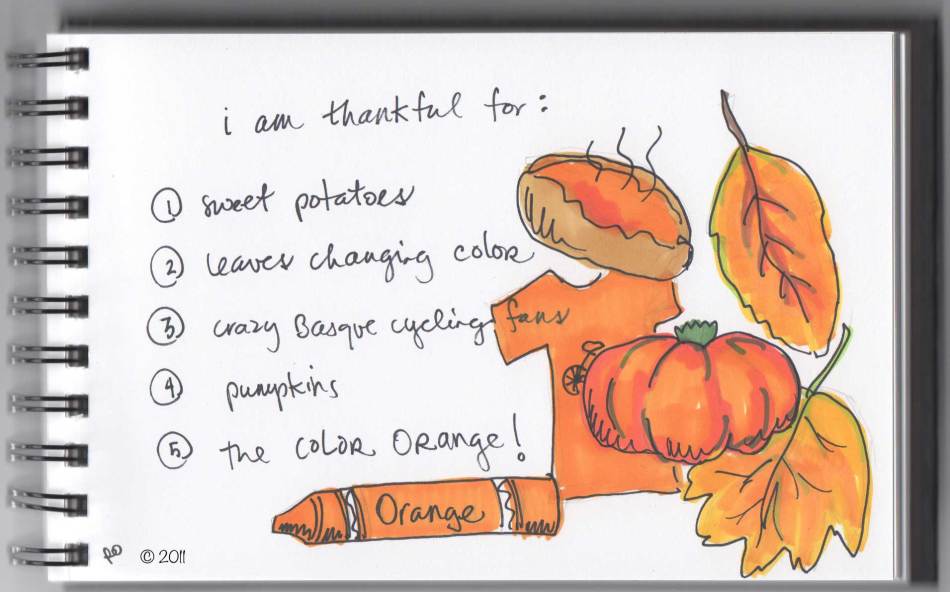 i am thankful for:
① sweet potatoes
② leaves changing color
③ crazy Basque cycling fans
④ pumpkins
⑤ the color orange!
Orange
© 2011